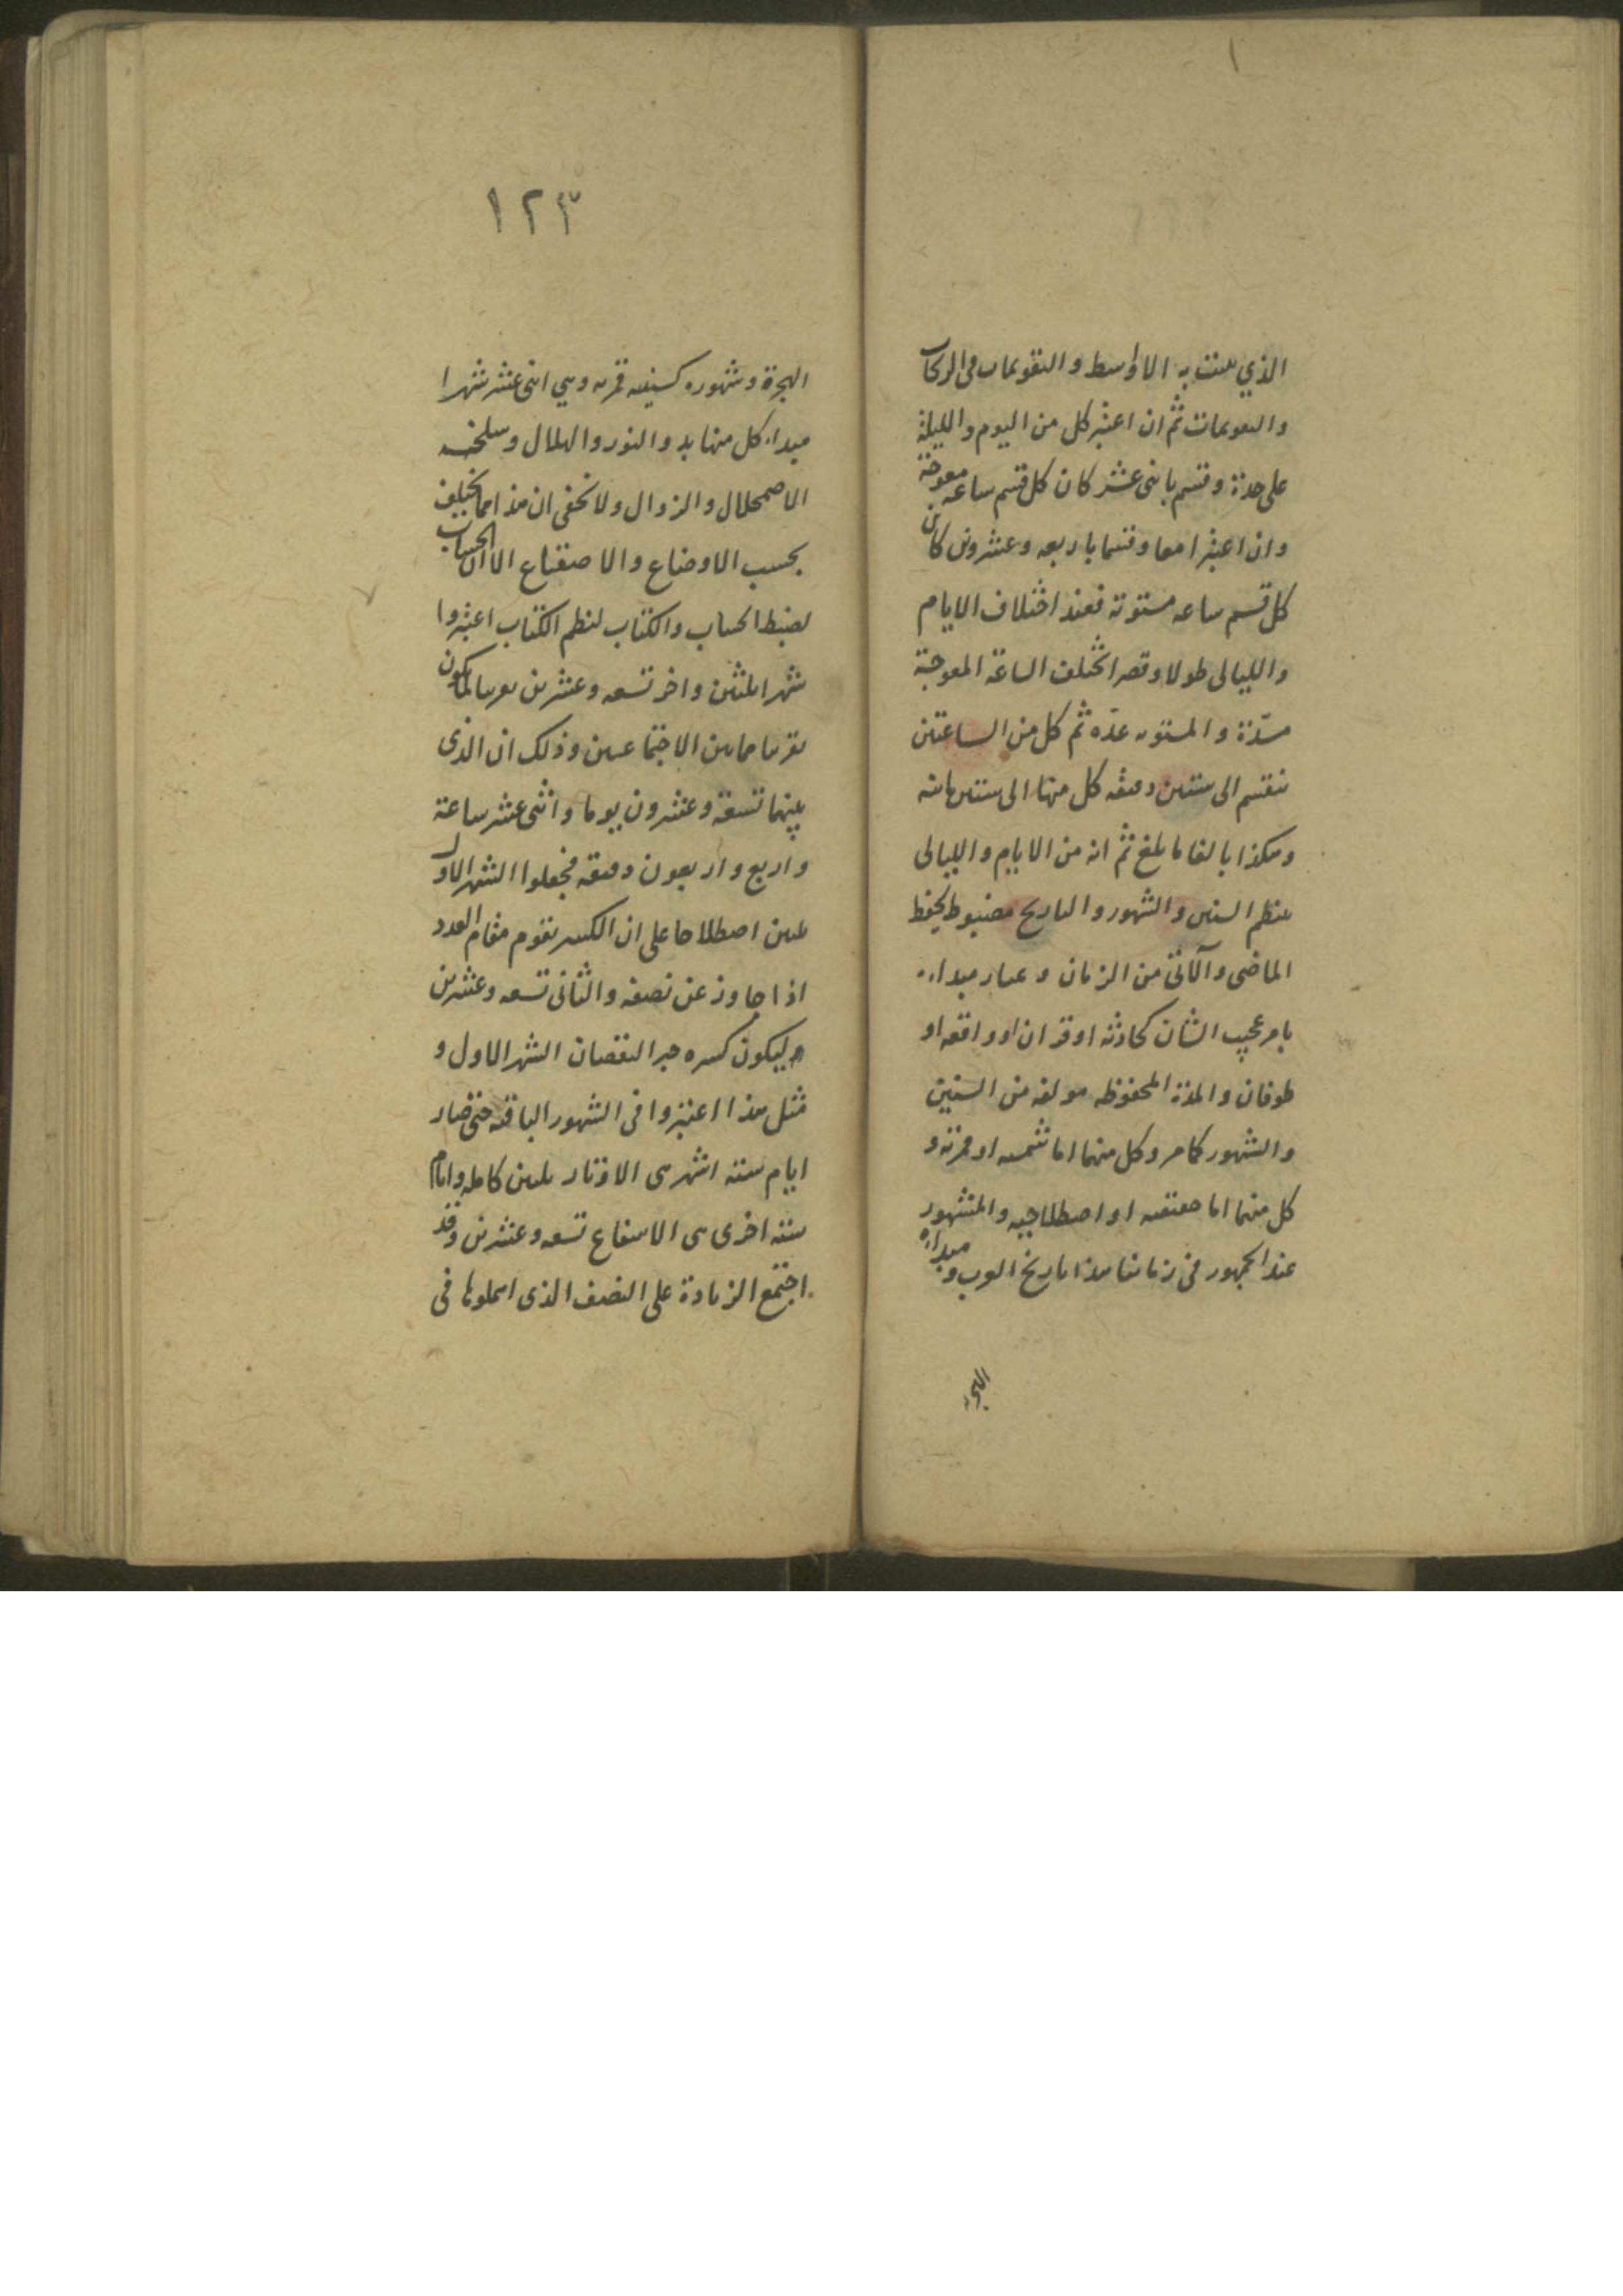 الذي يثبت به الاواسط والتقويمات في الحركات
والتقويمات ثم ان اعتبر كل من اليوم والليلة
على حدة وقسم باثنى عشر كان كل قسم ساعه معوجة
وان اعتبرا معا وقسما باربعه وعشرون كان
كل قسم ساعه مستوية فعند اختلاف الايام
والليالى طولا وقصرا تختلف الساعة المعوجة
مدّة والمستويه عدّه ثم كل من الساعتين
تنقسم الى ستين دقيقه كل منها الى ستين ثانيه
وهكذا بالغا ما بلغ ثم انه من الايام والليالى
ينظم السنين والشهور والتاريخ مضبوط يحفظ
الماضى والآتى من الزمان و مبداءه
بامر عجيب الشان كحادثه او قران او واقعه او
طوفان والمدة المحفوظه مولفه من السنين
والشهور كما مر وكل منهما اما شمسيه او قمريه و
كل منهما اما حقيقيه او اصطلاحيه والمشهور
عند الجمهور فى زماننا هذا تاريخ العرب ومبداه
الهجرة
١٢٣
الهجرة وشهوره كسنيه قمريه وهي اثنى عشر شهرا
مبداء كل منها بدو النور والهلال وسلخه
الاضمحلال والزوال ولا تخفى ان هذا مما يختلف
بحسب الاوضاع والاصقاع الا ان الحساب
لضبط الحساب والكتاب لنظم الكتاب اعتبروا
شهرا ثلثين واخر تسعه وعشرين تقريبا لما يكون
تقريبا ما بين الاجتماعين وذلك ان الذى
بينهما تسعة وعشرون يوما واثنى عشر ساعة
واربع واربعون دقيقه فجعلوا الشهر الاول
ثلثين اصطلاحا على ان الكسر يقوم مقام العدد
اذا جاوز عن نصفه والثانى تسعه وعشرين
ليكون كسره جبرا لنقصان الشهر الاول و
مثل هذا اعتبروا فى الشهور الباقيه حتى صار
ايام ستة اشهر هى الاوتار ثلثين كامله وايام
سته اخرى هى الاشفاع تسعه وعشرين وقد
اجتمع الزيادة على النصف الذى اهملوها فى